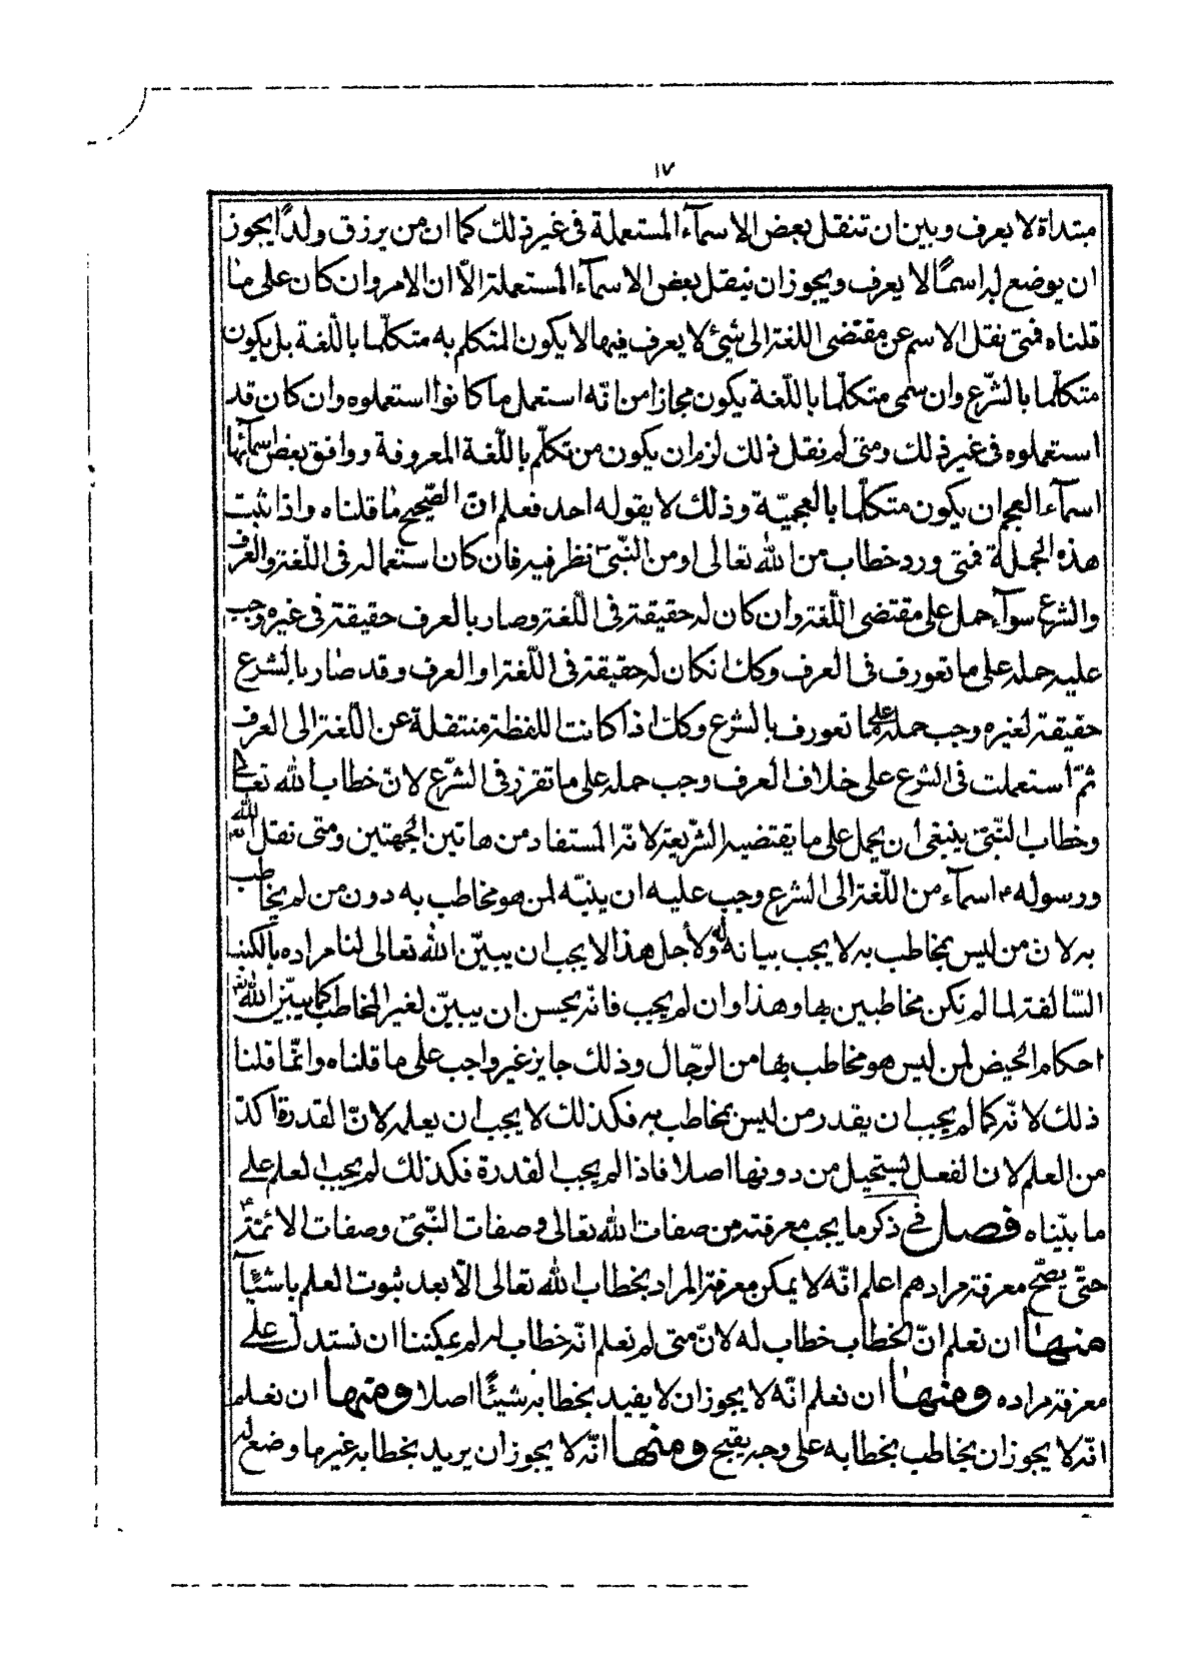 ١٧
مبتداة لا يعرف وبين ان تنقل بعض الاسمآء المستعملة فى غير ذلك كما ان من يرزق ولدًا يجوز
ان يوضع له اسمًا لا يعرف ويجوز ان ينقل بعض الاسمآء المستعملة الّا ان الامر وان كان على ما
قلناه فمتى نقل الاسم عن مقتضى اللغة الى شئ لا يعرف فيها لا يكون المتكلم به متكلّما باللّغة بل يكون
متكلّما بالشّرع وان سمّى متكلّما باللّغة يكون مجازا من انّه استعمل ما كانوا استعملوه وان كان قد
استعملوه فى غير ذلك ومتى لم نقل ذلك لزم ان يكون من تكلّم باللّغة المعروفة ووافق بعض اسمآئها
اسمآء العجم ان يكون متكلّما بالعجميّة وذلك لا يقوله احد فعلم انّ الصّحيح ما قلناه واذا ثبت
هذه الجملة فمتى ورد خطاب من الله تعالى او من النّبىّ ص نظر فيه فان كان استعماله فى اللّغة والعرف
والشرع سوآء حمل على مقتضى اللّغة وان كان له حقيقة فى اللّغة وصار بالعرف حقيقة فى غيره وجب
عليه حمله على ما تعورف فى العرف وكك ان كان له حقيقة فى اللّغة او العرف وقد صار بالشرع
حقيقة لغيره وجب حمله على ما تعورف بالشرع وكك اذا كانت اللفظة منتقلة عن اللّغة الى العرف
ثمّ استعملت فى الشرع على خلاف العرف وجب حمله على ما تقرّر فى الشّرع لانّ خطاب الله تعالى
وخطاب النّبىّ ينبغى ان يحمل على ما يقتضيه الشّريعة لانّه المستفاد من هاتين الجهتين ومتى نقل الله تع
ورسوله ص اسمآء من اللّغة الى الشرع وجب عليه ان ينبّه لمن هو مخاطب به دون من لم يخاطب
به لان من ليس بمخاطب به لا يجب بيانه له ولأجل هذا لا يجب ان يبيّن الله تعالى لنا مراده بالكتب
السّالفة لما لم نكن مخاطبين بها وهذا وان لم يجب فانّه يحسن ان يبيّن لغير المخاطب كما يبيّن الله تع
احكام الحيض لمن ليس هو مخاطب بها من الرّجال وذلك جايز غير واجب على ما قلناه وانّما قلنا
ذلك لانّه كما لم يجب ان يقدر من ليس بمخاطب به فكذلك لا يجب ان يعلمه لانّ القدرة اكد
من العلم لان الفعل يستحيل من دونها اصلا فاذا لم يجب القدرة فكذلك لم يجب العلم على
ما بيّناه فصل فى ذكر ما يجب معرفته من صفات الله تعالى وصفات النّبىّ ص وصفات الائمّة ع
حتّى يصّح معرفة مرادهم اعلم انّه لا يمكن معرفة المراد بخطاب الله تعالى الّا بعد ثبوت العلم باشيآء
منها ان نعلم انّ الخطاب خطاب له لانّ متى لم نعلم انّه خطاب له لم يمكننا ان نستدل على
معرفة مراده ومنها ان نعلم انّه لا يجوز ان لا يفيد بخطابه شيئًا اصلا ومنها ان نعلم
انّه لا يجوز ان يخاطب بخطابه على وجه يقبح ومنها انّه لا يجوز ان يريد بخطابه غير ما وضع له